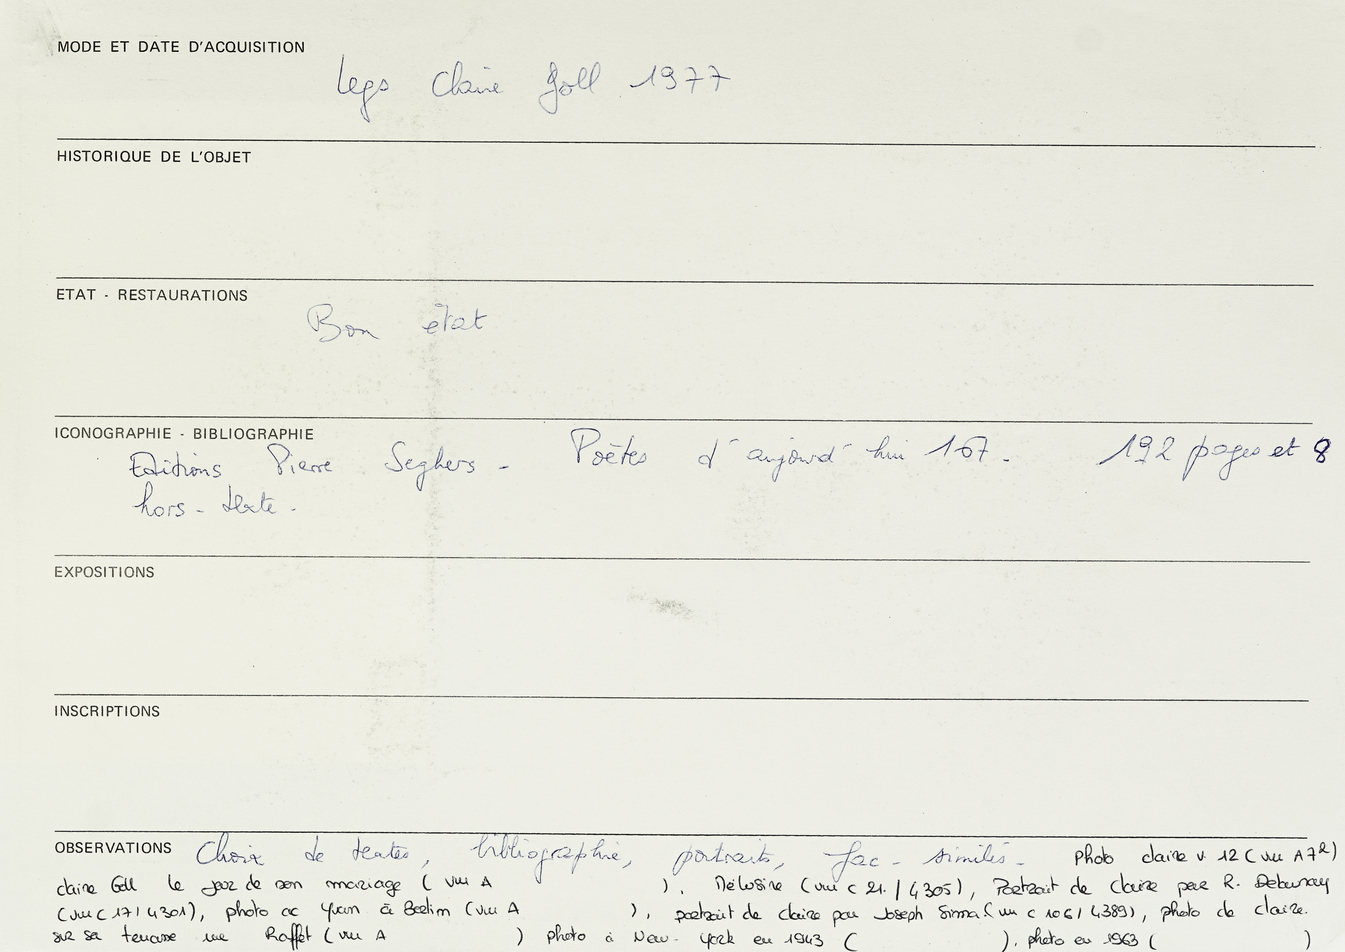 MODE ET DATE D'ACQUISITION
legs Claire Goll 1977
HISTORIQUE DE L'OBJET
ETAT - RESTAURATIONS
Bon état
ICONOGRAPHIE - BIBLIOGRAPHIE
Editions Pierre Seghers - Poètes d'aujourd'hui 167. 192 pages et 8
hors-texte.
EXPOSITIONS
INSCRIPTIONS
OBSERVATIONS Choix de textes, bibliographie, portraits, fac-similés - Photo claire v. 12 (
claire Goll le jour de son mariage ( VIII A ), Mélusine (VIII C 21 / 4305), Portrait de claire par R. Delaunay
(VIII C 17 / 4301), photo de Yvan à Berlin (VIII A ), portrait de claire par Joseph Sima (VIII C 106 / 4389), photo de claire
sur sa terrasse rue Raffet ( VIII A ) photo à New-York en 1943 ( ). photo en 1963 ( )